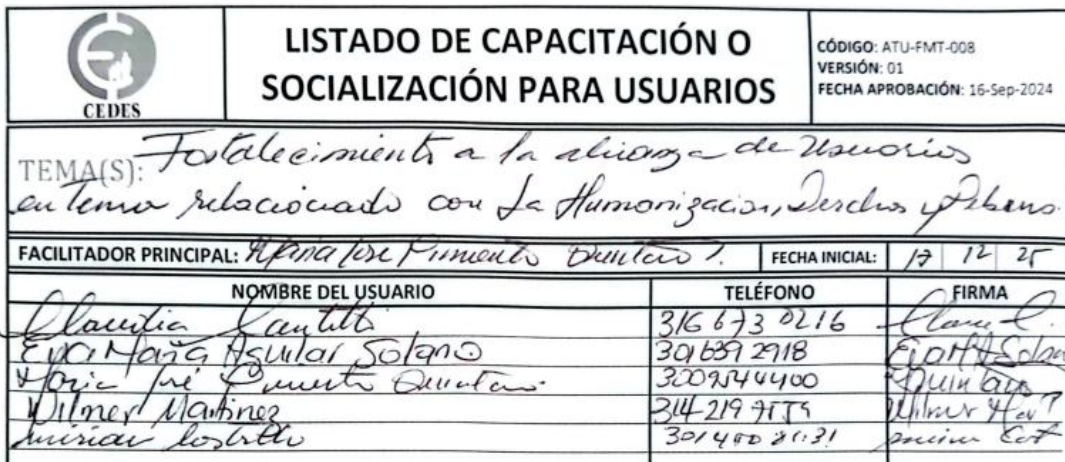 CEDES
LISTADO DE CAPACITACIÓN O
SOCIALIZACIÓN PARA USUARIOS
CÓDIGO: ATU-FMT-008
VERSIÓN: 01
FECHA APROBACIÓN: 16-Sep-2024
TEMA(S): Fortalecimiento a la alianza de Usuarios
en tema relacionado con La Humanizacion, Derechos y Deberes.
FACILITADOR PRINCIPAL: Maria Jose Pimienta Quintero FECHA INICIAL: 17 12 25
NOMBRE DEL USUARIO TELÉFONO FIRMA
Claudia Cantillo 316 673 0216
Eva Maria Aguilar Solano 301639 2918
Maria José Pimienta 3009544400
Wilmer Martinez 314 219 Wilmer
Castillo